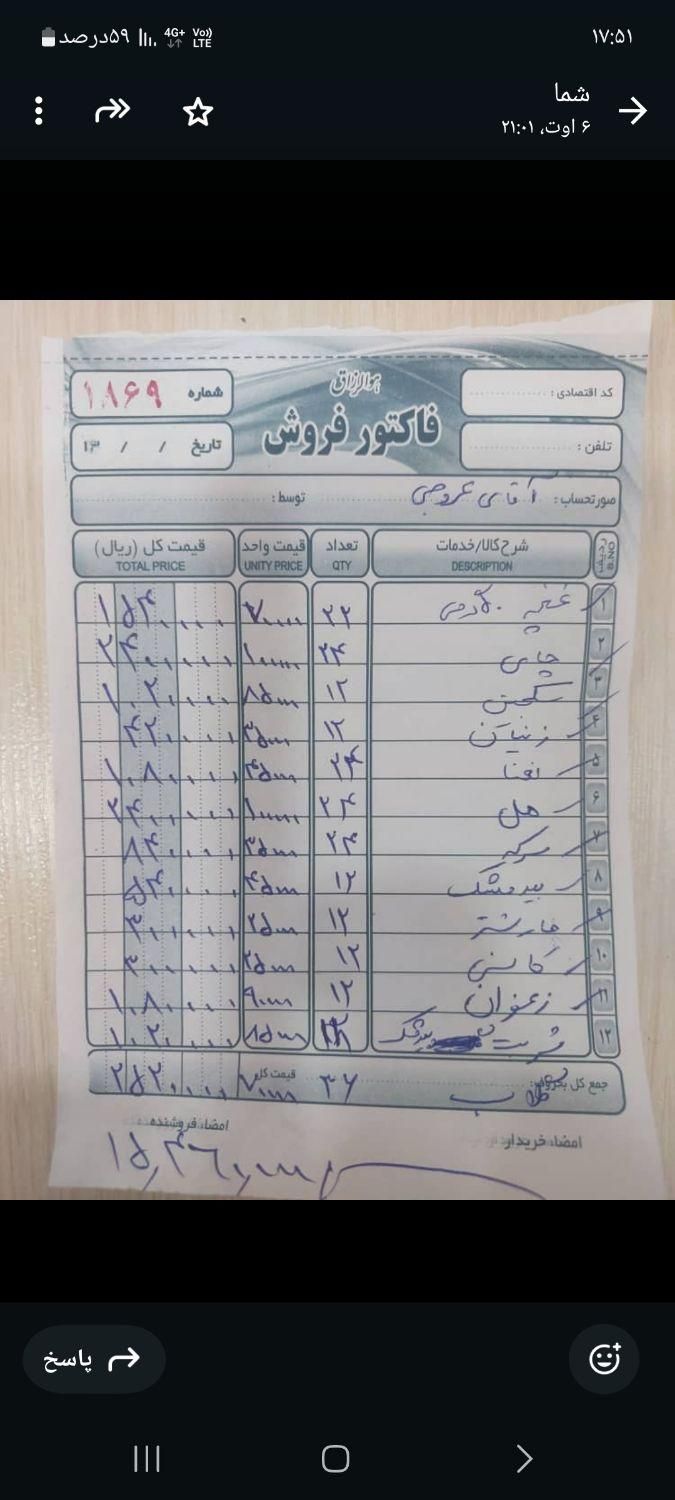 ۱۷:۵۱ ۵۹درصد 4G+ Vo)) LTE
شما
۶ اوت، ۲۱:۰۱
هوالرزاق
فاکتور فروش
شماره ۱۸۶۹
تاریخ / / ۱۳
کد اقتصادی :
تلفن :
صورتحساب : آقای عروجی توسط :
ردیف S.NO شرح کالا/خدمات DESCRIPTION تعداد QTY قیمت واحد UNITY PRICE قیمت کل (ریال) TOTAL PRICE
۱ غنچه ۲۲ ۷۰۰۰۰ ۱۵۴۰۰۰۰
۲ چای ۲۴ ۱۰۰۰۰۰ ۲۴۰۰۰۰۰
۳ ۱۲ ۸۵۰۰۰ ۱۰۲۰۰۰۰
۴ زنیان ۱۲ ۳۵۰۰۰ ۴۲۰۰۰۰
۵ نعنا ۲۴ ۴۵۰۰۰ ۱۰۸۰۰۰۰
۶ هل ۲۴ ۱۰۰۰۰۰ ۲۴۰۰۰۰۰
۷ سرکه ۲۴ ۳۵۰۰۰ ۸۴۰۰۰۰
۸ بیدمشک ۱۲ ۴۵۰۰۰ ۵۴۰۰۰۰
۹ خارشتر ۱۲ ۲۵۰۰۰ ۳۰۰۰۰۰
۱۰ کاسنی ۱۲ ۲۵۰۰۰ ۳۰۰۰۰۰
۱۱ زعفران ۱۲ ۹۰۰۰۰ ۱۰۸۰۰۰۰
۱۲ شربت بیدمشک ۸۵۰۰۰ ۱۰۲۰۰۰۰
جمع کل بحروف: گلاب ۳۶ قیمت کل ۷۰۰۰۰ ۲۵۲۰۰۰۰
امضاء خریدار امضاء فروشنده
۱۵,۴۶۰,۰۰۰
پاسخ